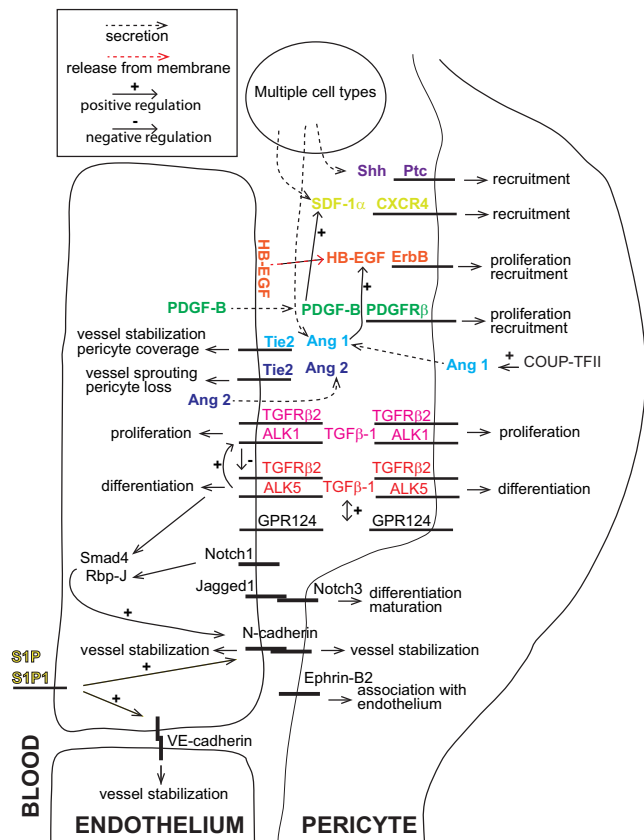 secretion
release from membrane
+
positive regulation
-
negative regulation
Multiple cell types
Shh Ptc
recruitment
SDF-1α CXCR4
recruitment
+
HB-EGF
HB-EGF ErbB
proliferation
recruitment
+
PDGF-B
PDGF-B PDGFRβ
proliferation
recruitment
vessel stabilization
pericyte coverage
Tie2 Ang 1
Ang 1
+
COUP-TFII
vessel sprouting
pericyte loss
Tie2 Ang 2
Ang 2
TGFRβ2 TGFRβ2
proliferation
ALK1 TGFβ-1 ALK1
proliferation
+
-
TGFRβ2 TGFRβ2
differentiation
ALK5 TGFβ-1 ALK5
differentiation
+
GPR124 GPR124
Smad4
Rbp-J
Notch1
Jagged1
Notch3
differentiation
maturation
+
N-cadherin
vessel stabilization
vessel stabilization
S1P
S1P1
+
+
Ephrin-B2
association with
endothelium
VE-cadherin
vessel stabilization
BLOOD
ENDOTHELIUM
PERICYTE